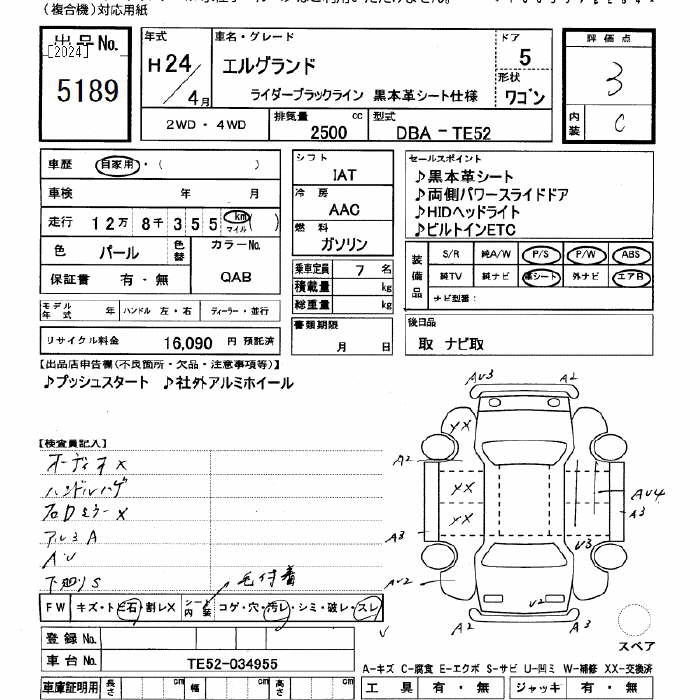 (複合機)対応用紙
出品No.
[2024]
5189
年式 車名・グレード ドア
H24/4月 エルグランド 5
ライダーブラックライン 黒本革シート仕様
形状 ワゴン
2WD・4WD 排気量 2500 cc 型式 DBA-TE52
評価点 3
内装 C
車歴 自家用・( )
車検 年 月
走行 12万 8千 355 km マイル ( )
色 パール 色替 カラーNo. QAB
保証書 有・無
モデル年式 年 ハンドル 左・右 ディーラー・並行
リサイクル料金 16,090 円 預託済
シフト IAT
冷房 AAC
燃料 ガソリン
乗車定員 7 名
積載量 kg
総重量 kg
書類期限 月 日
セールスポイント
♪黒本革シート
♪両側パワースライドドア
♪HIDヘッドライト
♪ビルトインETC
装備品 S/R 純A/W P/S P/W ABS
純TV 純ナビ 革シート 外ナビ エアB
ナビ型番:
後日品
取 ナビ取
【出品店申告欄(不良箇所・欠品・注意事項等)】
♪プッシュスタート ♪社外アルミホイール
【検査員記入】
オーディオX
ハンドルハゲ
右DミラーX
アルミA
AU
下廻りS
毛付着
FW キズ・トビ石・割レX シート内装 コゲ・穴・汚レ・シミ・破レ・スレ
登録No.
車台No. TE52-034955
車庫証明用 長さ cm 幅 cm 高さ cm
AU3 A2
XX
A2
XX AU4
XX A3
A3 U3
AU2
U2
A2 A3
スペア
A-キズ C-腐食 E-エクボ S-サビ U-凹ミ W-補修 XX-交換済
工具 有・無 ジャッキ 有・無